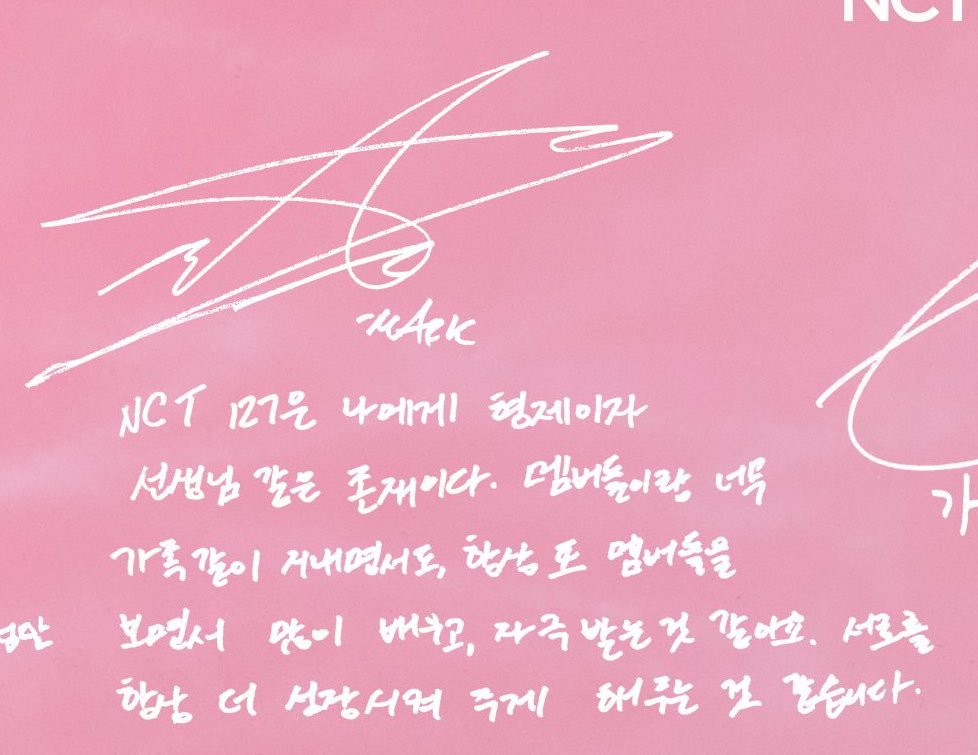 NCT
-MARK
NCT 127은 나에게 형제이자
선생님 같은 존재이다. 멤버들이랑 너무
가족같이 지내면서도, 항상 또 멤버들을
보면서 많이 배우고, 자극 받는 것 같아요. 서로를
항상 더 성장시켜 주게 해주는 것 같습니다.
가